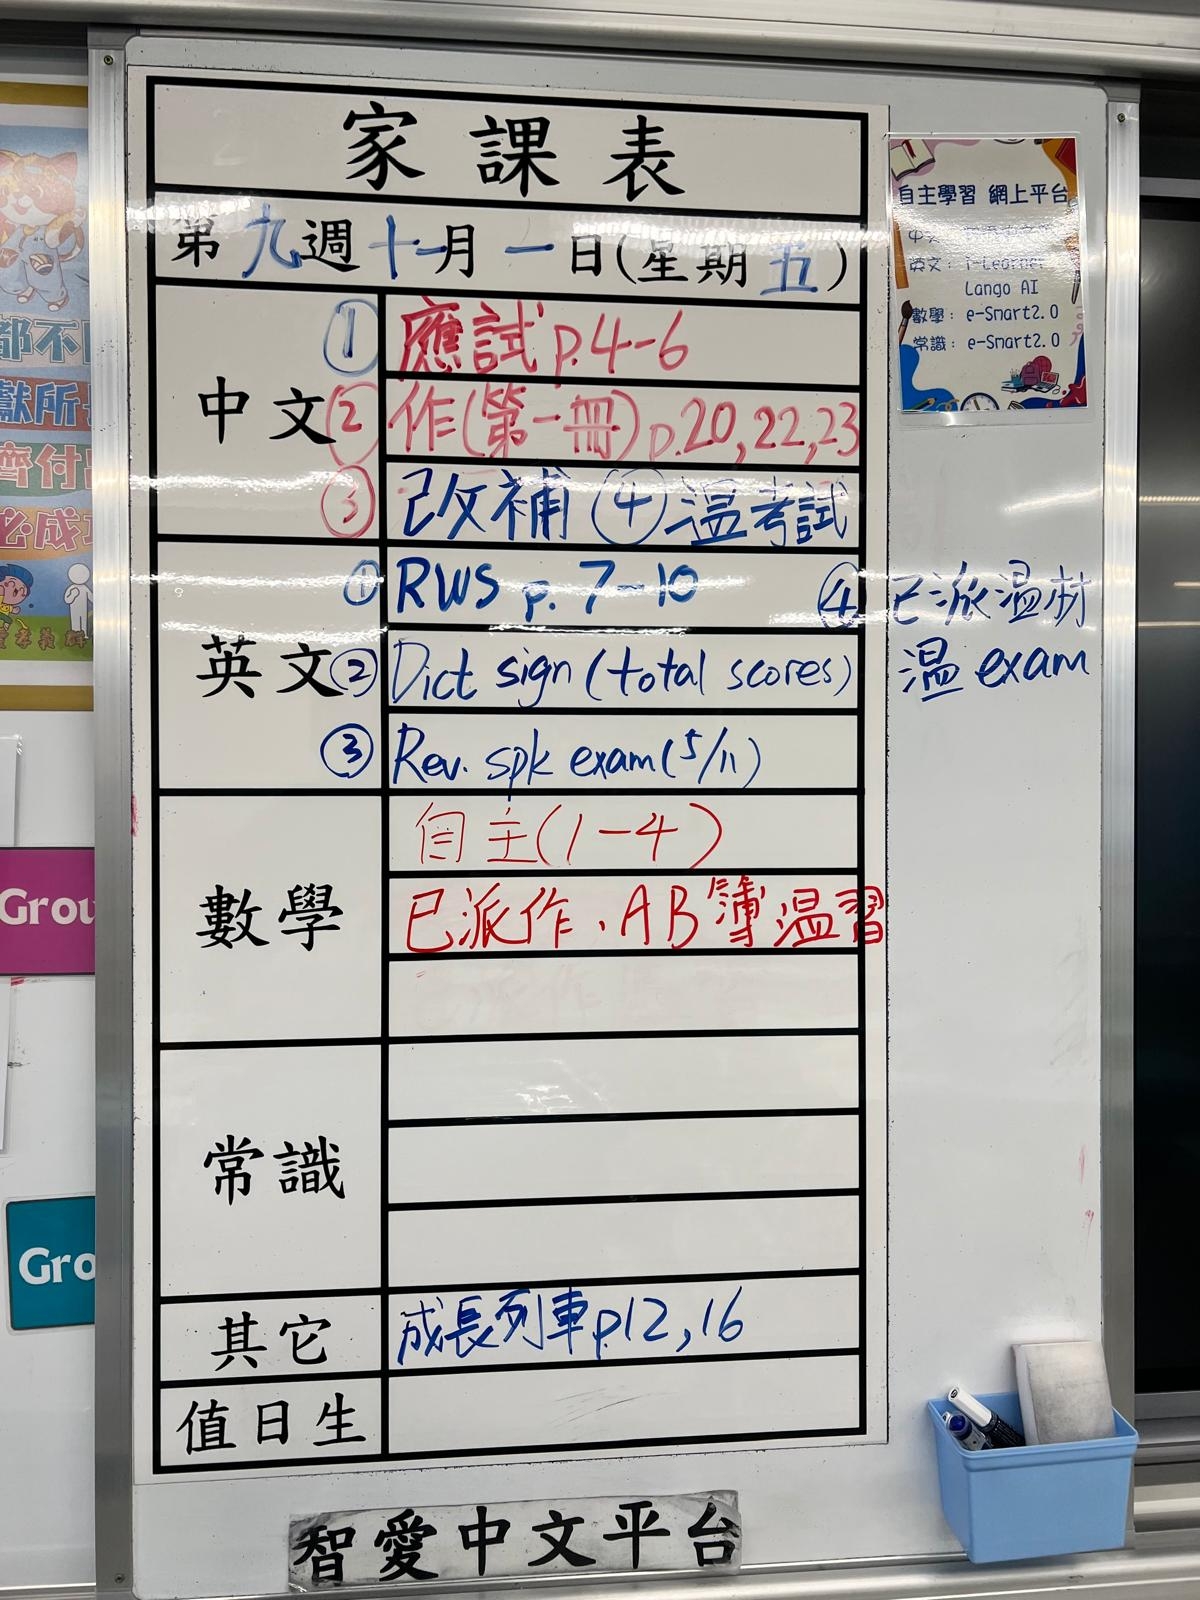 家課表
第九週十一月一日(星期五)
中文
① 應試 p.4-6
② 作(第一冊) p.20,22,23
③ 改補 ④ 温考試
英文
① RWS p. 7-10
② Dict sign (total scores)
③ Rev. spk exam (5/11)
④ 已派温材
温 exam
數學
自主(1-4)
已派作、AB簿温習
常識
其它
成長列車 p.12,16
值日生
智愛中文平台
自主學習 網上平台
英文: i-Learner
Lango AI
數學: e-Smart2.0
常識: e-Smart2.0
都不
獻所
齊付出
必成
Grou
Gro